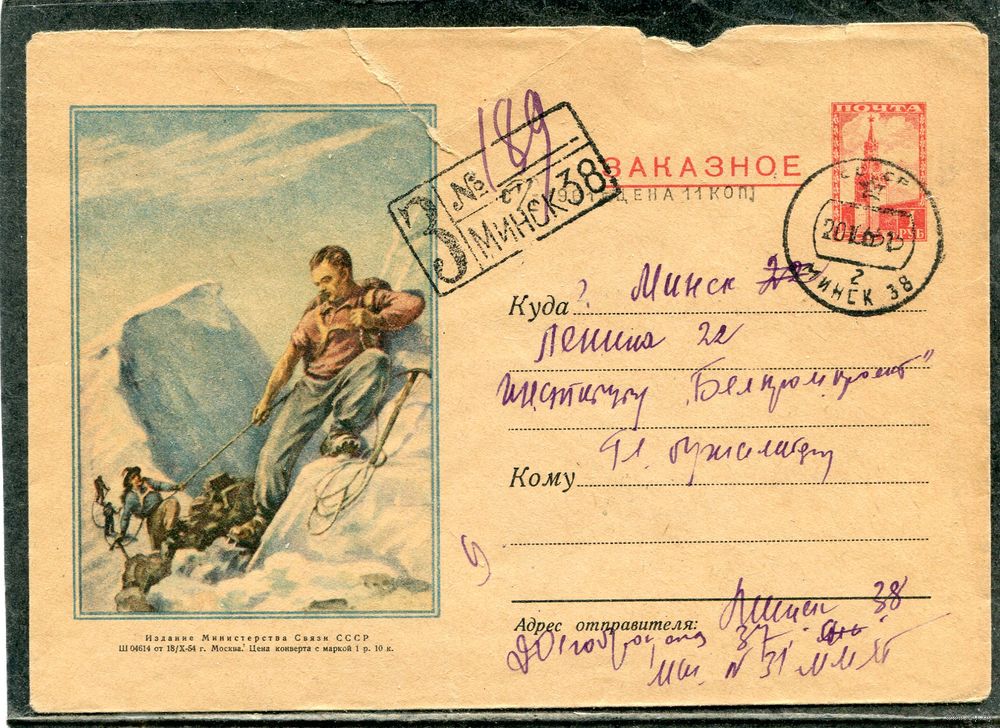 ПОЧТА
1 РУБ
ЗАКАЗНОЕ
ЦЕНА 11 КОП
З № 189
МИНСК 38
СССР
МИНСК 38
2
Куда г. Минск
Ленина 22
Институт „Белпромпроект"
Кому Гл.
Адрес отправителя: Минск 38
37
N 31
Издание Министерства Связи СССР
Ш 04614 от 18/X-54 г. Москва. Цена конверта с маркой 1 р. 10 к.